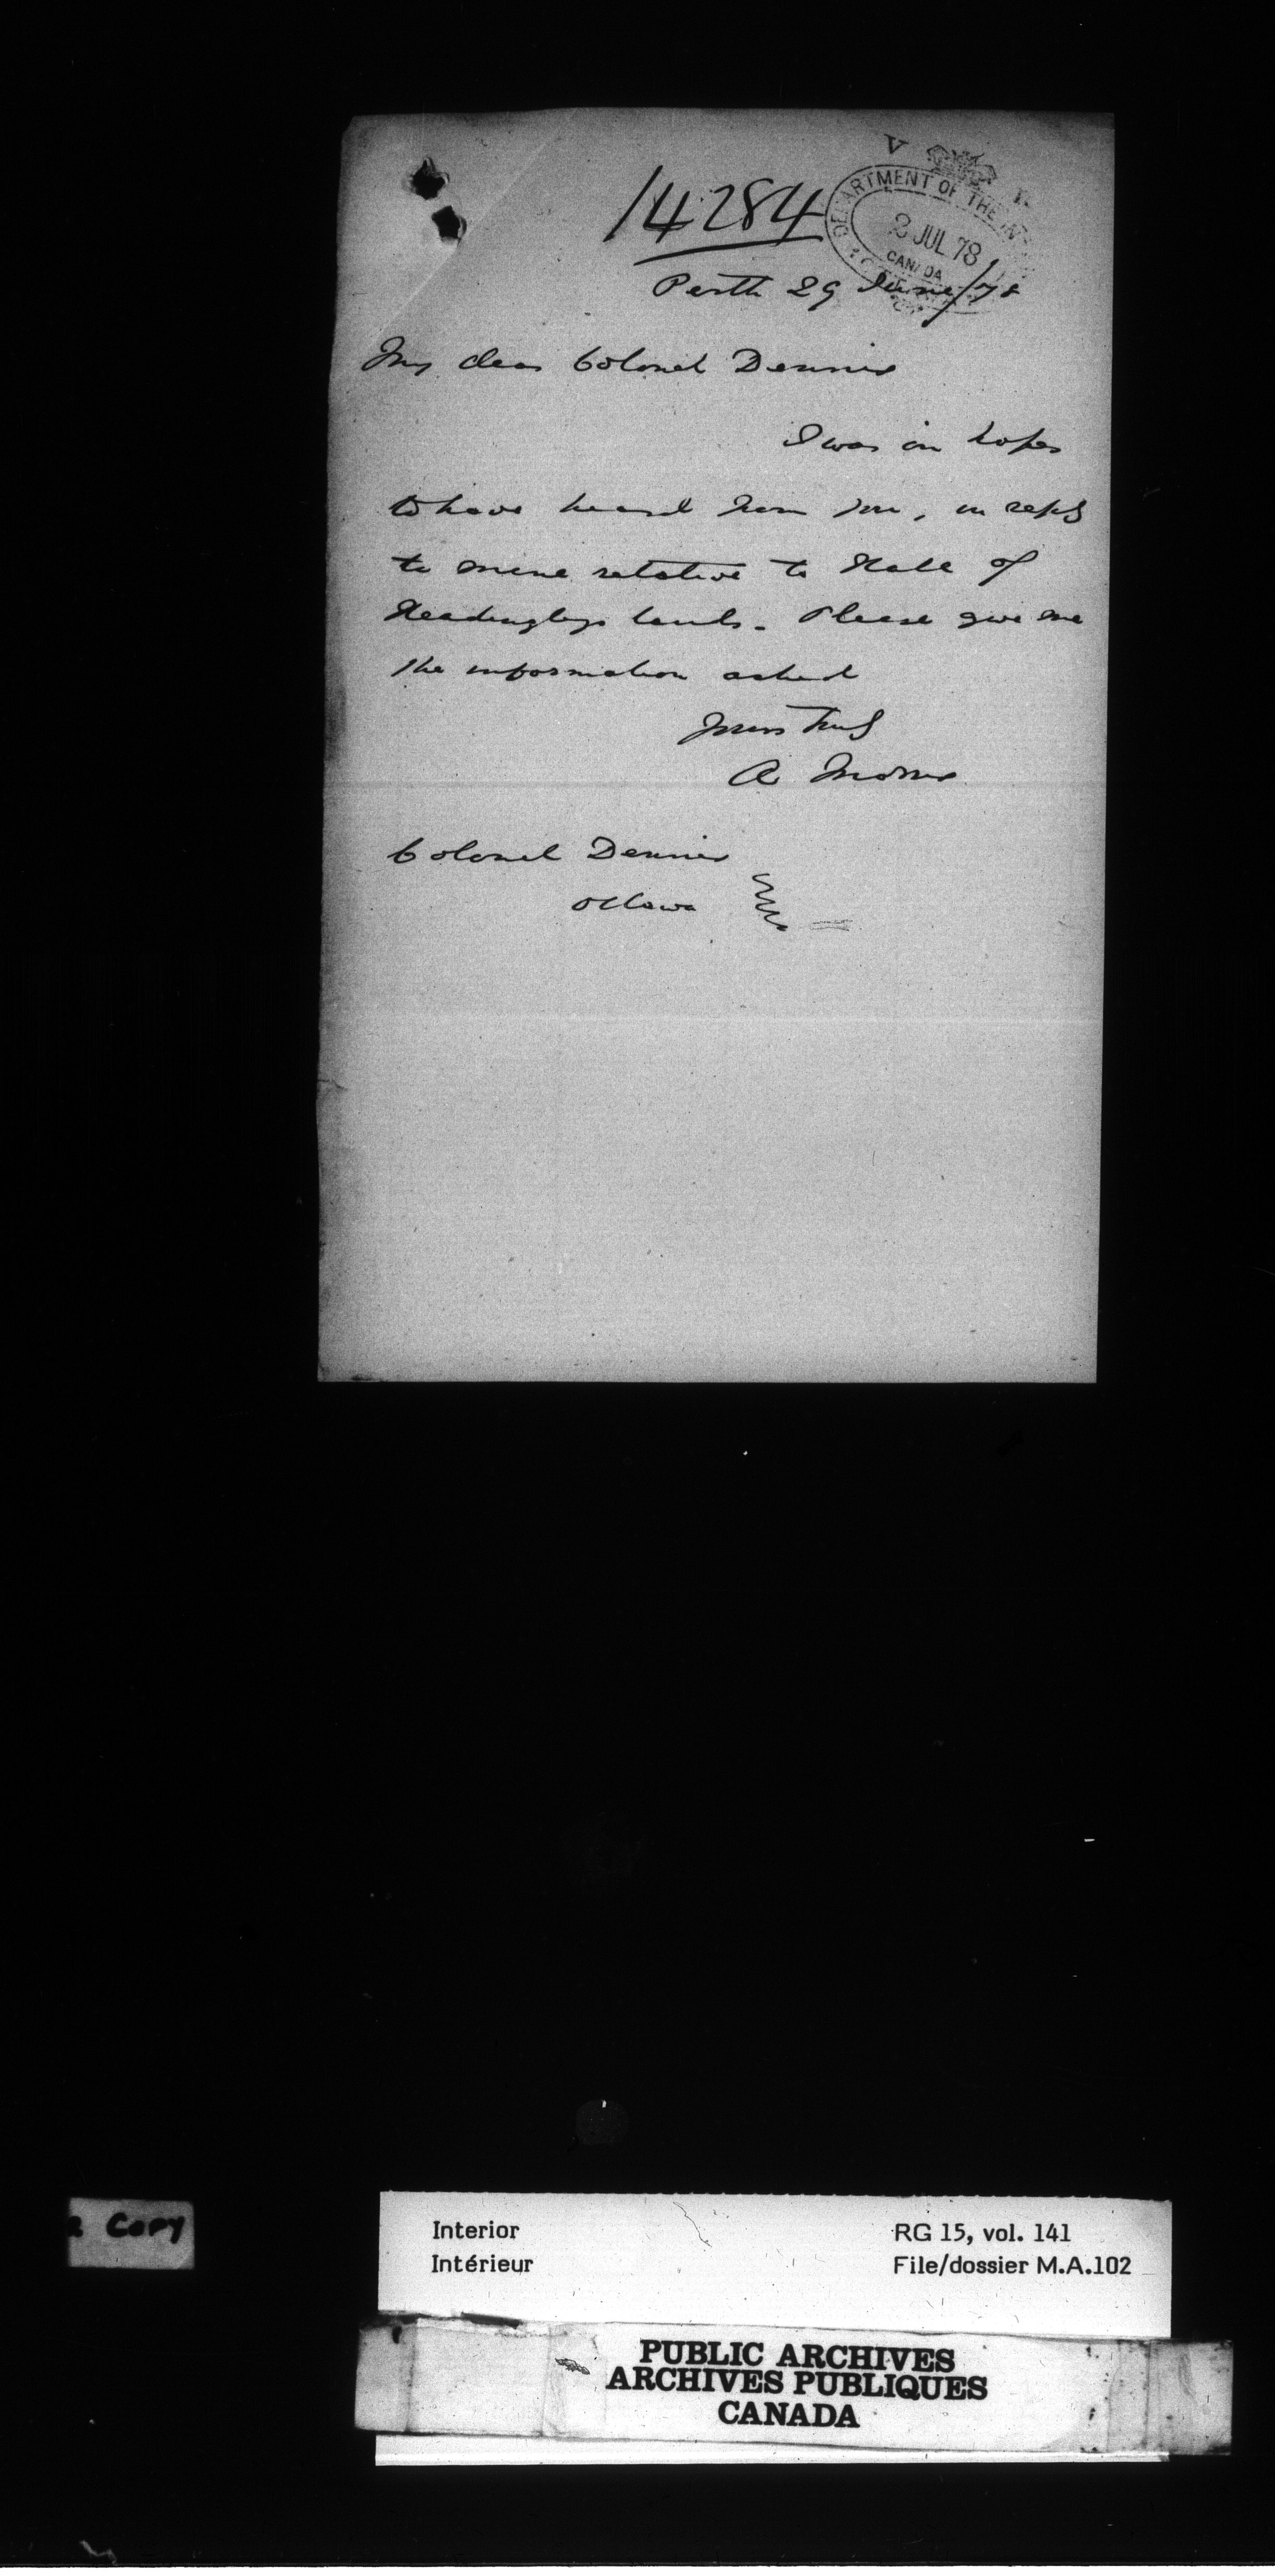 14284
DEPARTMENT OF THE IN
2 JUL 78
CANADA
Perth 29 June/78
My dear Colonel Dennis
I was in hopes
to have heard from you, in reply
to mine relative to State of
Headingley lands. Please give me
the information asked
Yours truly
A Morris
Colonel Dennis
Ottawa
Copy
Interior
Intérieur
RG 15, vol. 141
File/dossier M.A.102
PUBLIC ARCHIVES
ARCHIVES PUBLIQUES
CANADA